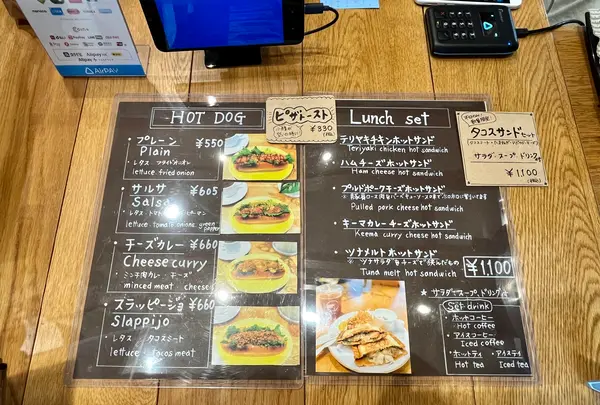 AirPAY
HOT DOG
・プレーン ¥550
Plain
・レタス
lettuce fried onion
・サルサ ¥605
Salsa
lettuce・tomato・onions・green pepper
・チーズカレー ¥660
Cheese curry
ミンチ肉カレー・チーズ
minced meat cheese
・スラッピージョ ¥660
Slappijo
・レタス ・タコスミート
lettuce ・tacos meat
ピザトースト
¥330
Lunch set
・テリヤキチキンホットサンド
Teriyaki chicken hot sandwich
・ハムチーズホットサンド
Ham cheese hot sandwich
・プルドポークチーズホットサンド
Pulled pork cheese hot sandwich
・キーマカレーチーズホットサンド
Keema curry cheese hot sandwich
・ツナメルトホットサンド
Tuna melt hot sandwich
¥1,100
★ サラダ・スープ・ドリンク付
Set drink
・ホットコーヒー
Hot coffee
・アイスコーヒー
Iced coffee
・ホットティ ・アイスティ
Hot tea Iced tea
タコスサンドセット
サラダ・スープ・ドリンク付
¥1,100